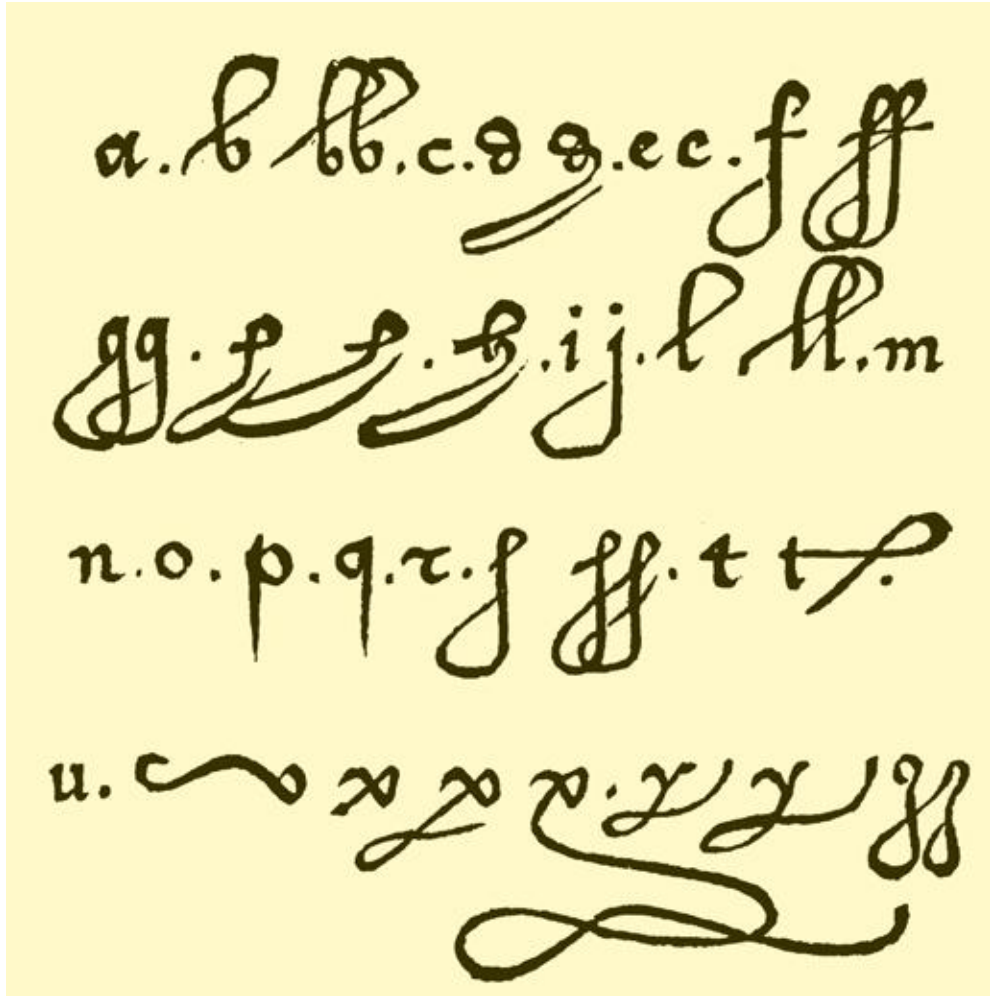 a. b bb. c. d d. e e. f ff
gg. h h. h. i j. l ll. m
n. o. p. q. r. ſ ſſ. t t.
u. v x x x. y y zz